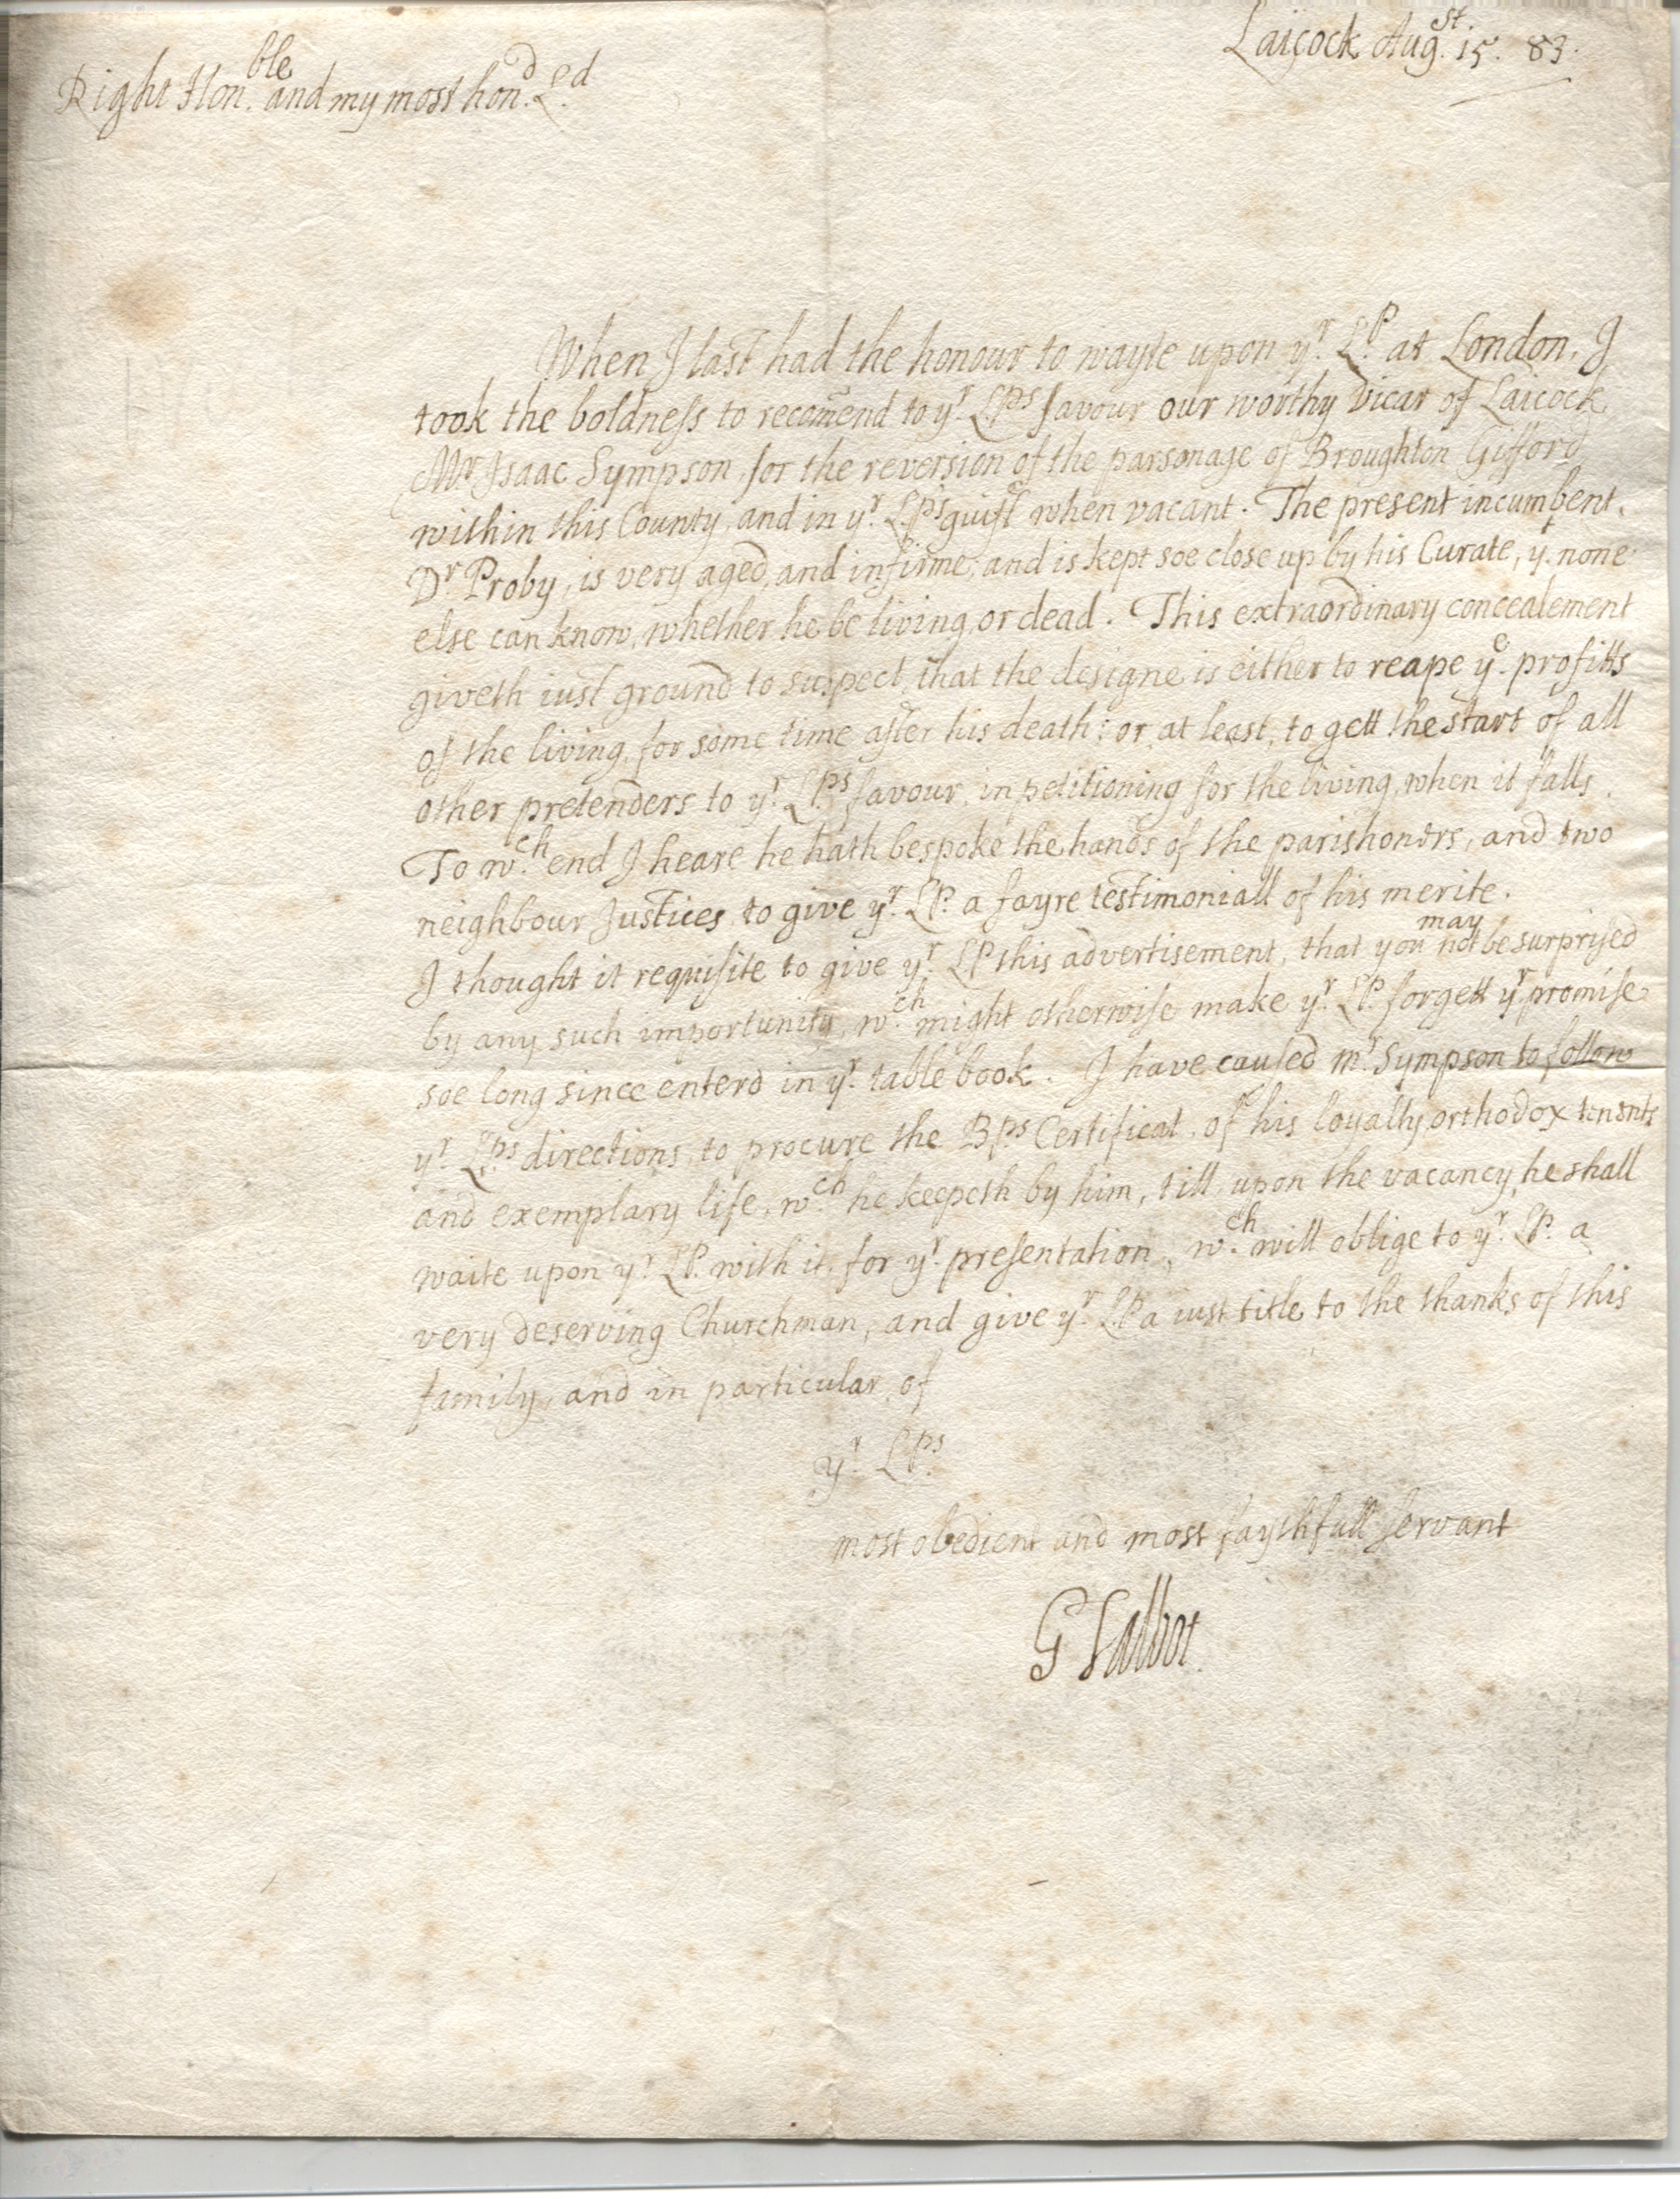 Laicock Aug.st 15. 83.
Right Hon.ble and my most hon.d L.d
When I last had the honour to wayte upon y.r L.P at London, I
took the boldness to recom̄end to y.r L.Ps favour our worthy Vicar of Laicock
Mr Isaac Sympson, for the reversion of the parsonage of Broughton Gifford
within this County, and in y.r L.Ps guift when vacant. The present incumbent,
Dr Proby, is very aged, and infirme; and is kept soe close up by his Curate, y.t none
else can know, whether he be living, or dead. This extraordinary concealement
giveth iust ground to suspect, that the designe is either to reape y.e profitts
of the living, for some time after his death: or, at least, to gett the start of all
other pretenders to y.r L.Ps favour, in petitioning for the living, when it falls.
To w.ch end I heare he hath bespoke the hands of the parishoners, and two
neighbour Justices, to give y.r L.P. a fayre testimoniall of his merite.
I thought it requisite to give y.r LP this advertisement, that you may not be surprised
by any such importunity, w.ch might otherwise make y.r L.P. forgett y.r promise
soe long since enterd in y.r table book. I have caused M.r Sympson to follow
y.r L.Ps directions, to procure the B.Ps Certificat, of his loyalty, orthodox tenents
and exemplary life, w.ch he keepeth by him, till, upon the vacancy, he shall
waite upon y.r L.P. with it, for y.r presentation, w.ch will oblige to y.r L.P. a
very deserving Churchman, and give y.r L.P a iust title to the thanks of this
family, and in particular, of
y.r L.Ps
most obedient and most faythfull servant
G Talbot.